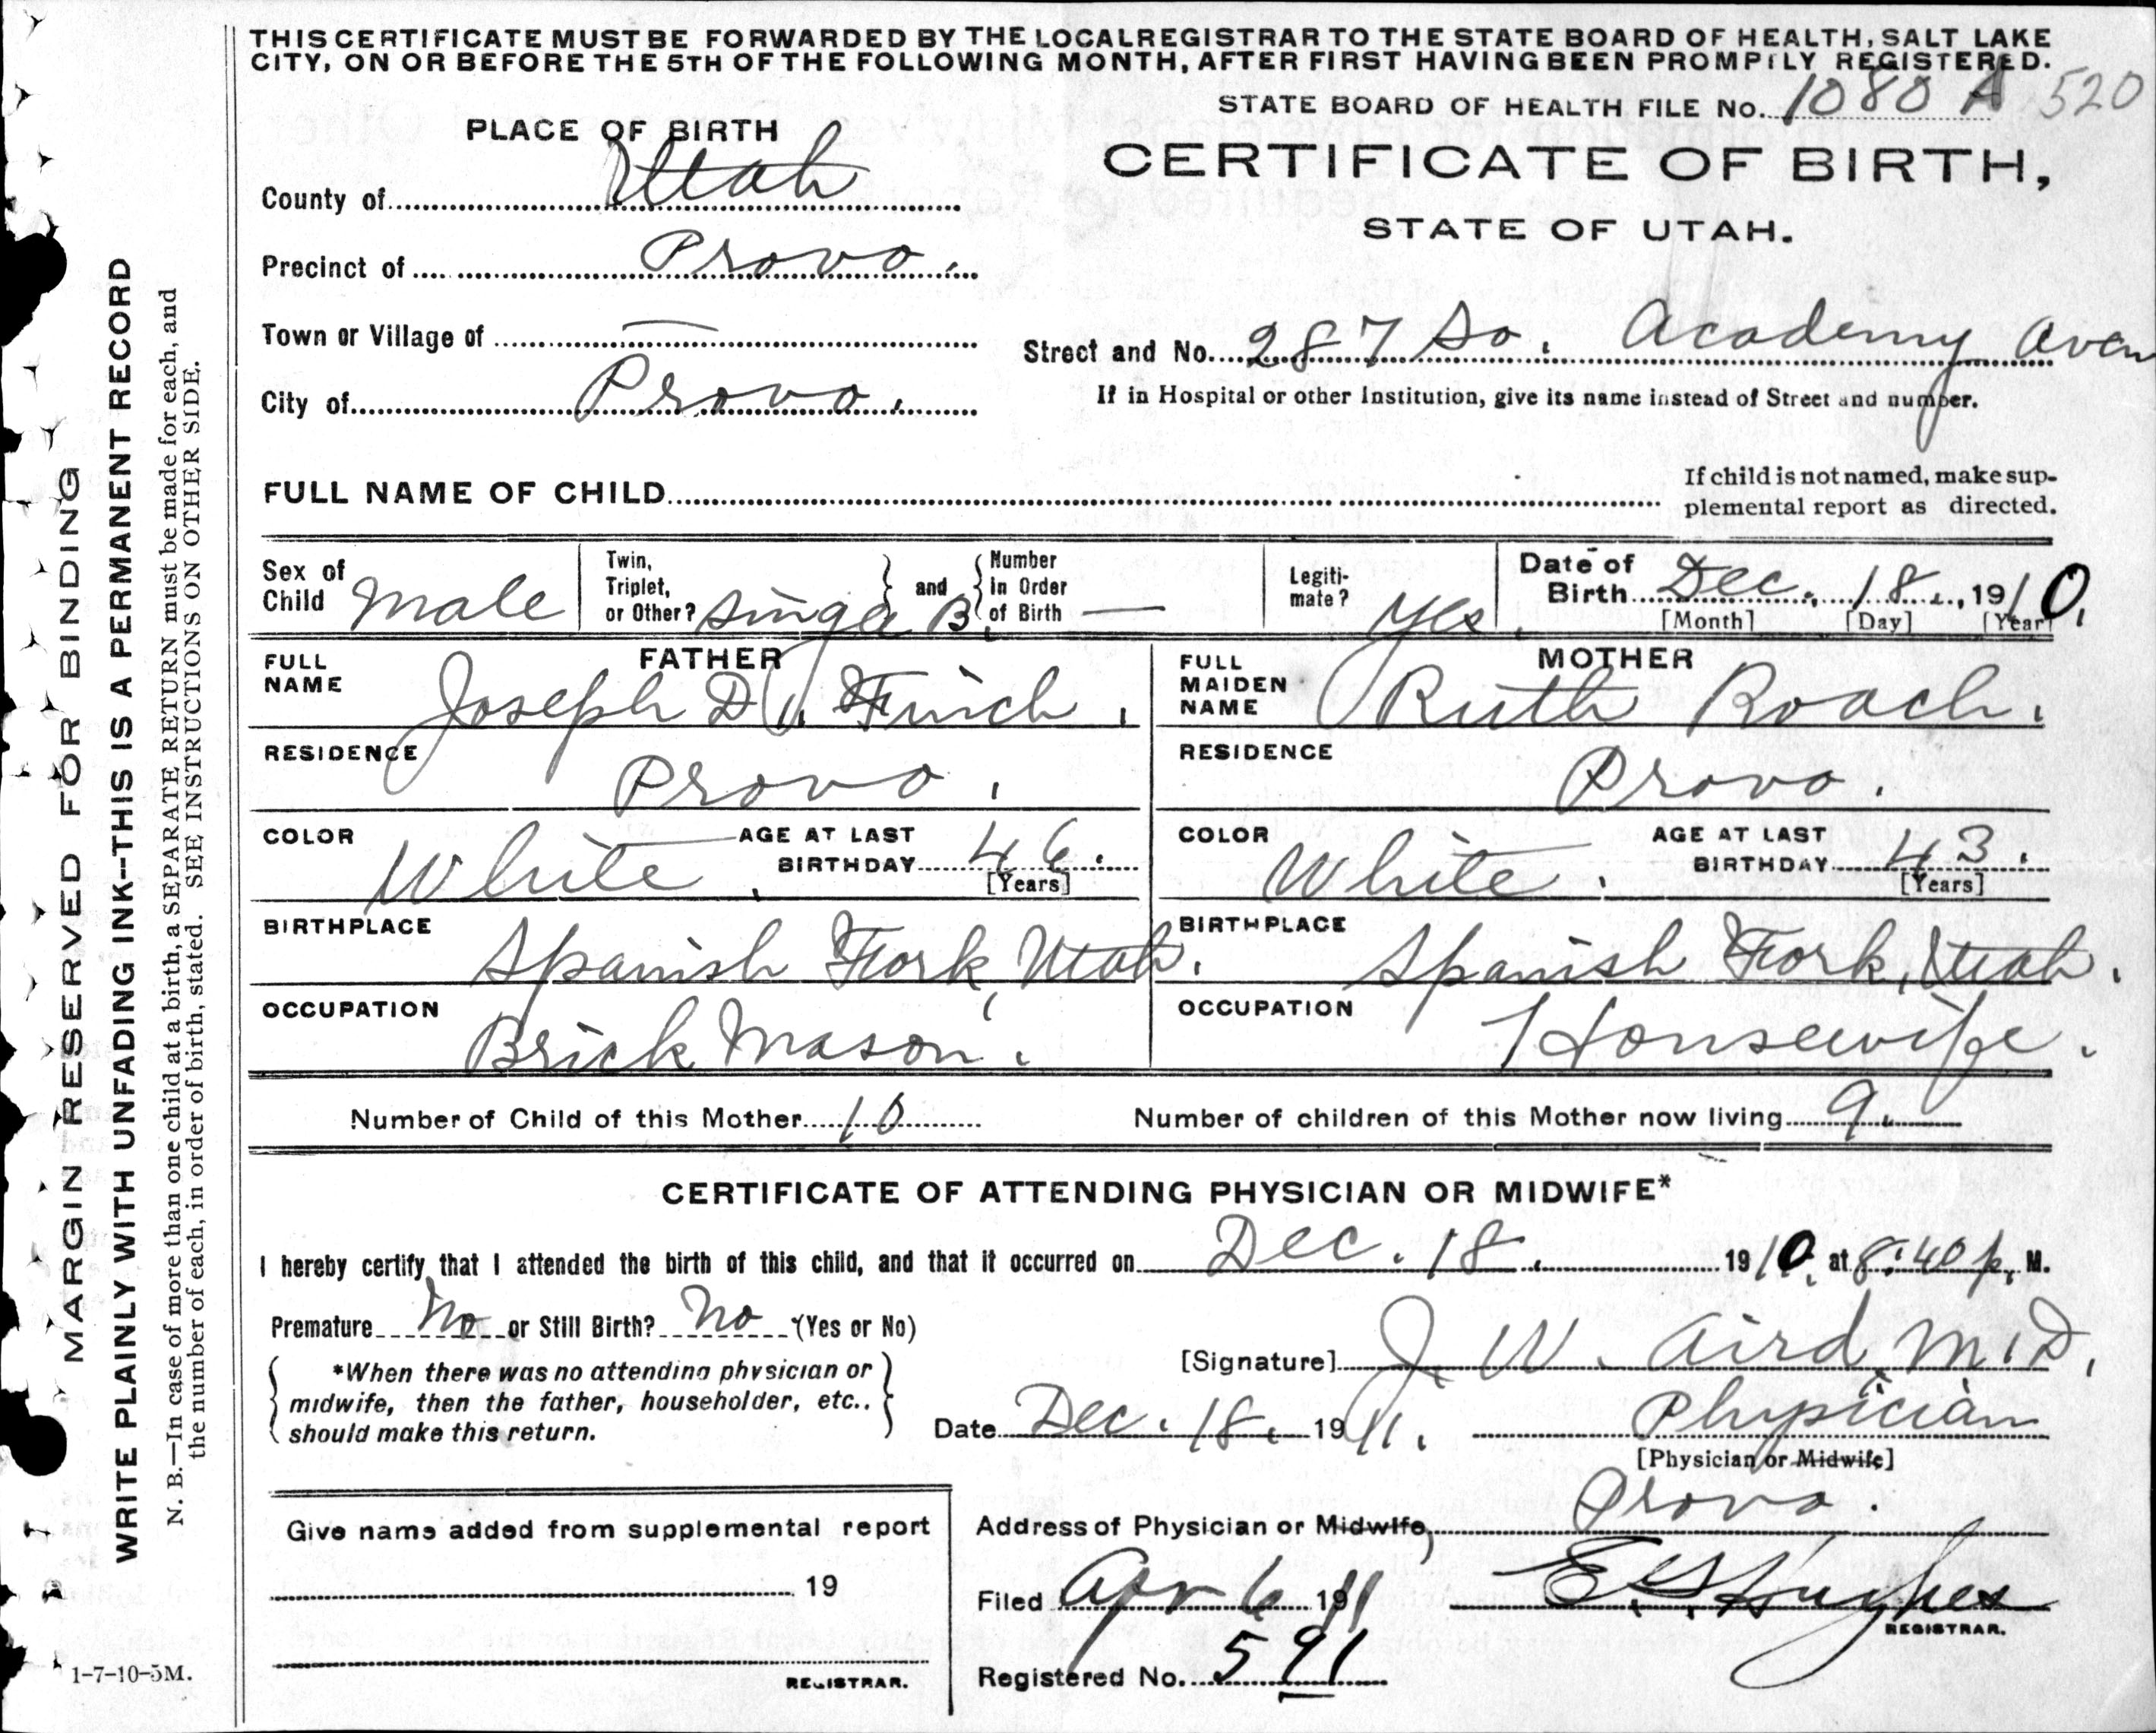 THIS CERTIFICATE MUST BE FORWARDED BY THE LOCAL REGISTRAR TO THE STATE BOARD OF HEALTH, SALT LAKE
CITY, ON OR BEFORE THE 5TH OF THE FOLLOWING MONTH, AFTER FIRST HAVING BEEN PROMPTLY REGISTERED.
STATE BOARD OF HEALTH FILE No. 1080 A 520
PLACE OF BIRTH
CERTIFICATE OF BIRTH,
STATE OF UTAH.
County of Utah
Precinct of Provo.
Town or Village of —
Street and No. 287 So. Academy Aven
City of Provo.
If in Hospital or other Institution, give its name instead of Street and number.
FULL NAME OF CHILD
If child is not named, make sup-
plemental report as directed.
Sex of Child Male
Twin, Triplet, or Other? Single B. and Number in Order of Birth —
Legiti-mate? Yes.
Date of Birth Dec. 18., 1910.
[Month] [Day] [Year]
FATHER
FULL NAME Joseph D. Finch.
RESIDENCE Provo.
COLOR White. AGE AT LAST BIRTHDAY 46. [Years]
BIRTHPLACE Spanish Fork, Utah.
OCCUPATION Brick Mason.
MOTHER
FULL MAIDEN NAME Ruth Roach.
RESIDENCE Provo.
COLOR White. AGE AT LAST BIRTHDAY 43. [Years]
BIRTHPLACE Spanish Fork, Utah.
OCCUPATION Housewife.
Number of Child of this Mother 10 Number of children of this Mother now living 9.
CERTIFICATE OF ATTENDING PHYSICIAN OR MIDWIFE*
I hereby certify that I attended the birth of this child, and that it occurred on Dec. 18. 1910. at 8:40 p. M.
Premature No or Still Birth? No (Yes or No)
*When there was no attending physician or
midwife, then the father, householder, etc.,
should make this return.
[Signature] J. W. Aird M.D.
Date Dec. 18. 1911. Physician
[Physician or Midwife]
Address of Physician or Midwife, Provo.
Give name added from supplemental report
19
REGISTRAR.
Filed Apr 6 1911 E. S. Hughes
REGISTRAR.
Registered No. 591
MARGIN RESERVED FOR BINDING
WRITE PLAINLY WITH UNFADING INK--THIS IS A PERMANENT RECORD
N. B.—In case of more than one child at a birth, a SEPARATE RETURN must be made for each, and
the number of each, in order of birth, stated. SEE INSTRUCTIONS ON OTHER SIDE.
1-7-10-5M.